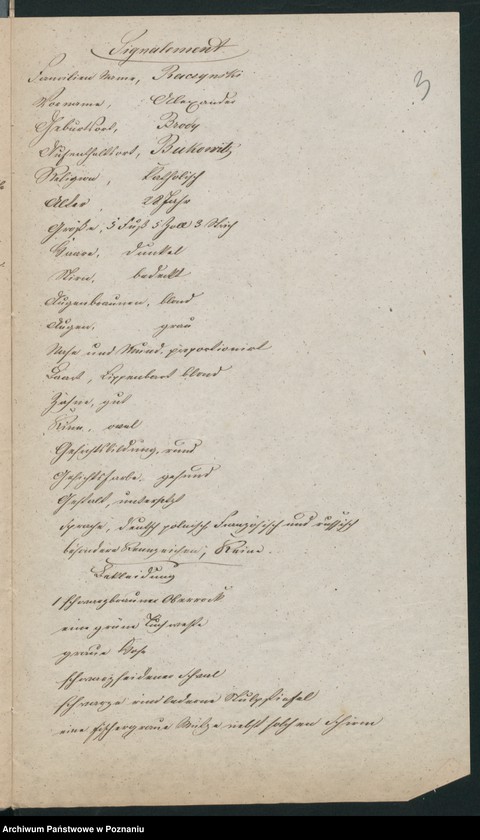 Signalement
3
Familien Name, Raczynski
Vorname, Alexander
Geburtsort, Brody
Aufenthaltsort, Bukowitz
Religion, katholisch
Alter, 28 Jahr
Größe, 5 Fuß 5 Zoll 3 Strich
Haare, dunkel
Stirn, bedeckt
Augenbraunen, blond
Augen, grau
Nase und Mund, proportionirt
Baart, Lippenbart blond
Zähne, gut
Kinn, oval
Gesichtsbildung, rund
Gesichtsfarbe, gesund
Gestalt, untersetzt
Sprache, deutsch polnisch Französisch und russisch
besondere Kennzeichen, Keine.
Bekleidung
1 schwarzbrauner Oberrock
eine grüne Tuchweste
graue Hose
schwarzseidener Schaal
schwarze rindslederne Stulpstiefel
eine graue Mütze nebst Schirm
Archiwum Państwowe w Poznaniu